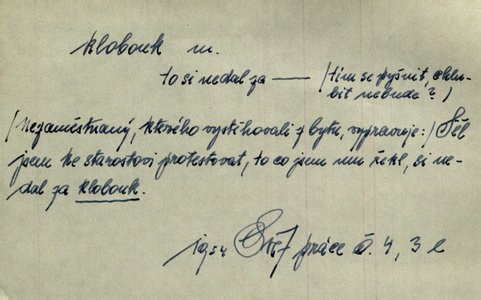 klobouk m.
to si nedal za —— (tím se pyšnit, chlu-
bit nebude?)
(Nezaměstnaný, kterého vystěhovali z bytu, vypravuje:) Šel
jsem ke starostovi protestovat, to co jsem mu řekl, si ne-
dal za klobouk.
práce č. 4, 3 e